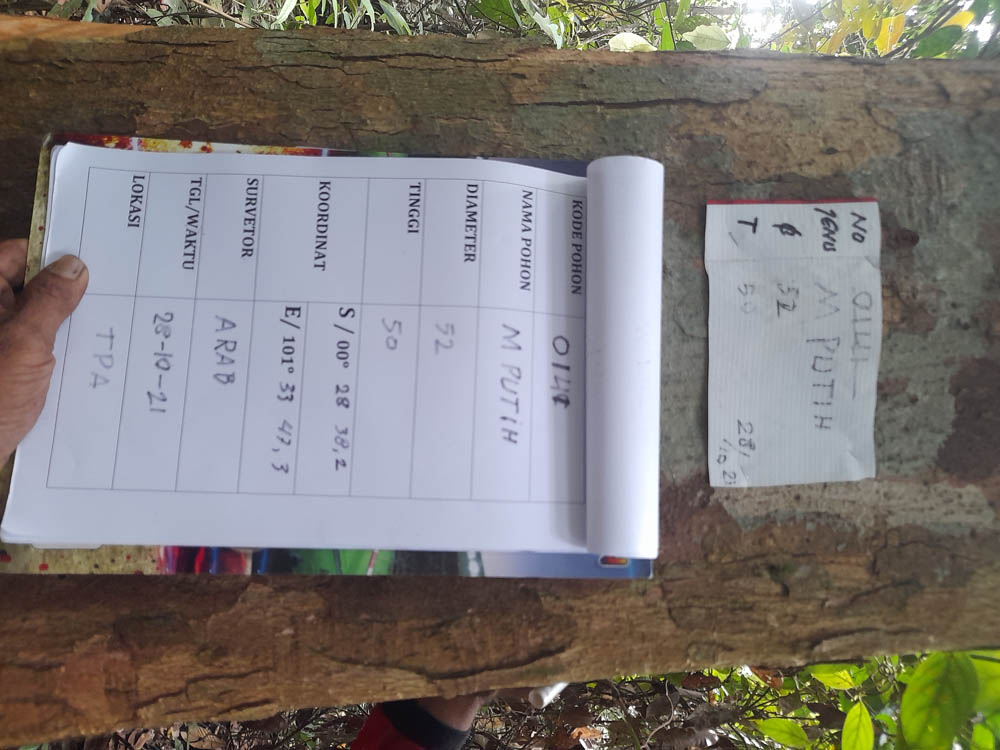 NO 0141
JENIS M PUTIH
ϕ 52
T 50 28/10 21
KODE POHON 0141
NAMA POHON M PUTIH
DIAMETER 52
TINGGI 50
KOORDINAT S / 00° 28 38,2
E/ 101° 33 47,3
SURVETOR ARAB
TGL/WAKTU 28-10-21
LOKASI TPA